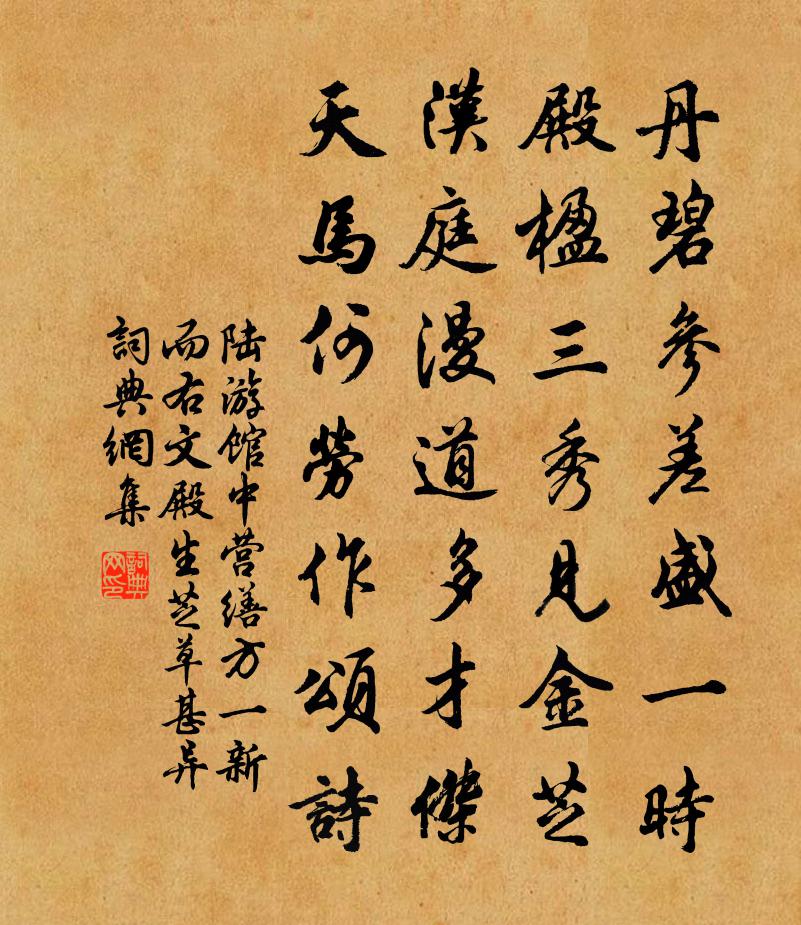 丹碧參差盛一時
殿楹三秀見金芝
漢庭漫道多才傑
天馬何勞作頌詩
陆游馆中营缮方一新
而右文殿生芝草甚异
詞典網集
詞典网印